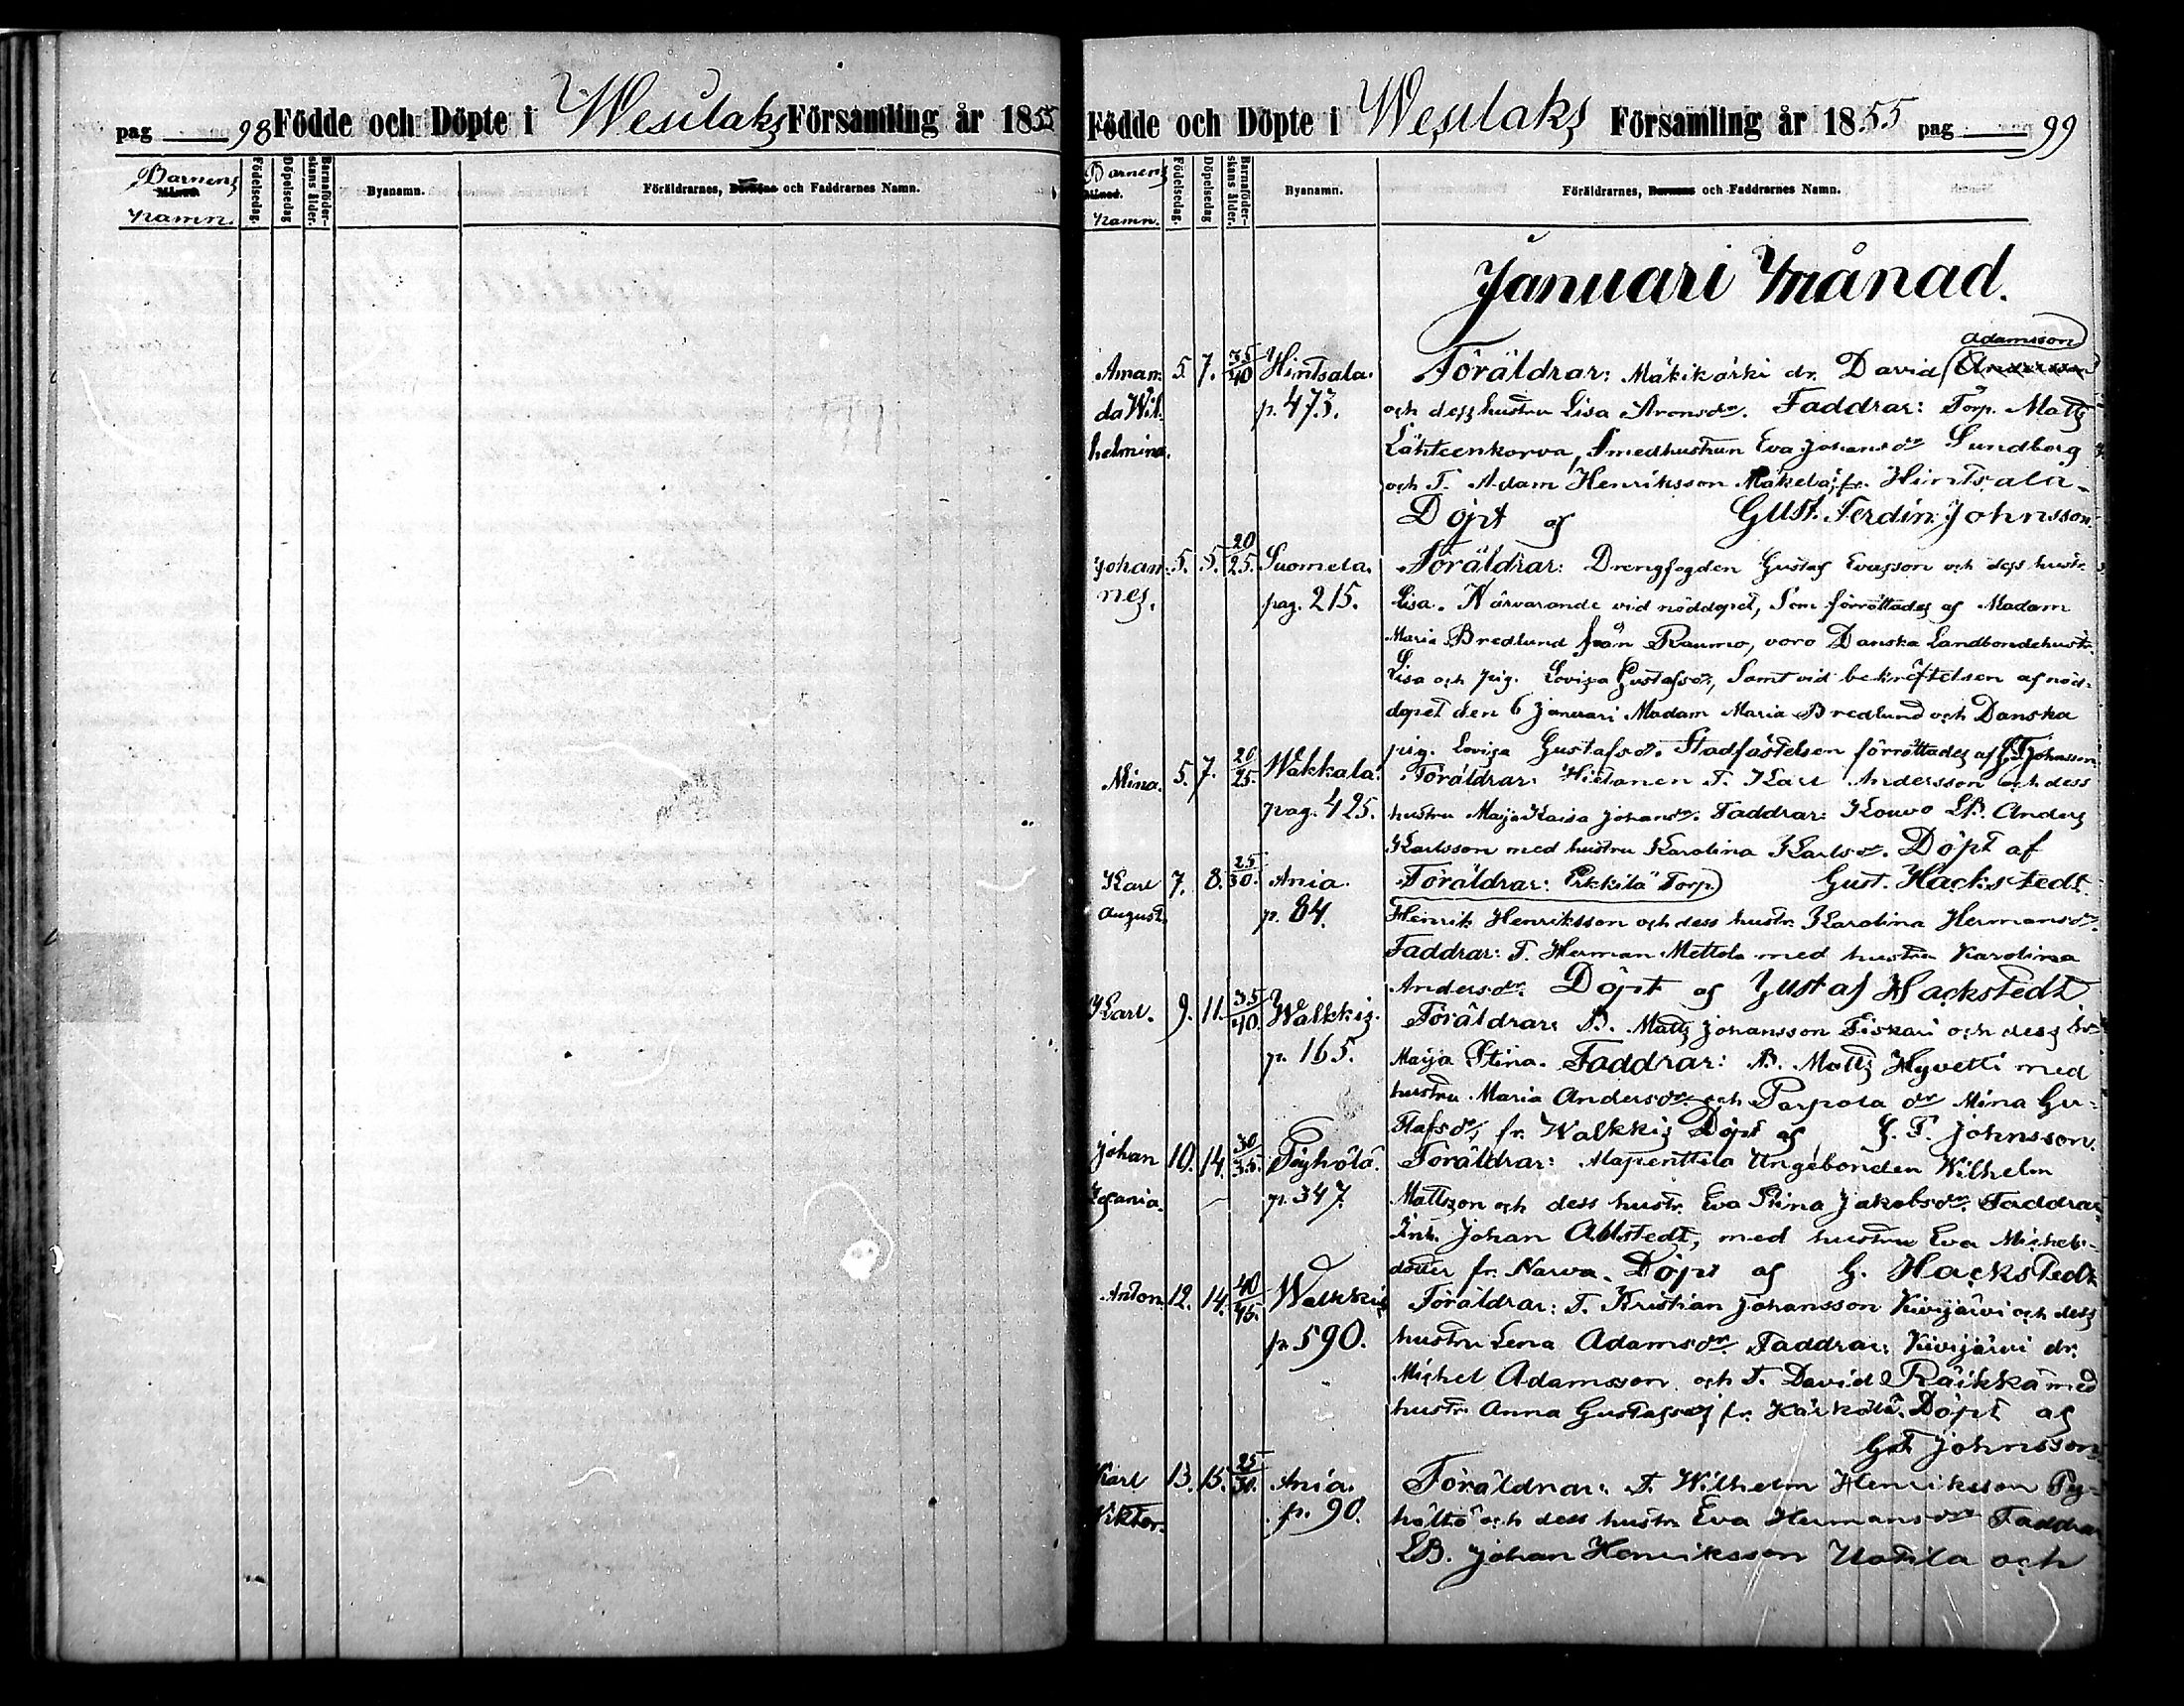 pag 98 Födde och Döpte i Wesilaks Församling år 1855
Barnens Namn. Födelsedag. Döpelsedag Barnaföderskans ålder. Byanamn. Föräldrarnes, Barnens och Faddrarnes Namn.
Födde och Döpte i Wesilaks Församling år 1855 pag 99
Barnens Månad. Namn. Födelsedag. Döpelsedag Barnaföderskans ålder. Byanamn. Föräldrarnes, Barnens och Faddrarnes Namn.
Januari Månad.
Adamsson
Aman 5. 7. 35/40 Hintsala. Föräldrar: Mäkikärki dr. David Andersson
da Wil p. 473. och dess hustru Lisa Aronsdr. Faddrar: Torp. Matts
helmina. Lähteenkorva, Smedhustrun Eva Johansdr Sundberg
och T. Adam Henriksson Mäkelä, fr. Hintsala.
Döpt af Gust. Ferdin. Johnsson.
Johan 5. 5. 20/25. Suomela. Föräldrar: Drengfogden Gustaf Evasson och dess hustr.
nes. pag. 215. Lisa. Närvarande vid nöddopet, Som förrättades af Madam
Maria Bredlund från Raumo, voro Danska Landbondehustr.
Lisa och pig. Lovisa Gustafsdr, Samt vid bekräftelsen af nöd-
dopet den 6 Januari Madam Maria Bredlund och Danska
pig. Lovisa Gustafsdr. Stadfästelsen förrättades af G.F. Johnsson.
Mina. 5. 7. 20/25. Wakkala. Föräldrar: Hietanen T. Karl Andersson och dess
pag. 425. hustru Maja Kaisa Johansdr. Faddrar: Kouvo LB. Anders
Karlsson med hustru Karolina Karlsdr. Döpt af
Karl 7. 8. 25/30. Ania. Föräldrar: Erkkilä Torp. Gust. Hackstedt.
August. p. 84. Henrik Henriksson och dess hustr. Karolina Hermansdr.
Faddrar: T. Herman Mettola med hustru Karolina
Andersdr. Döpt af Gustaf Hackstedt
Karl. 9. 11. 35/40. Walkkis. Föräldrar: B. Matts Johansson Fiskari och dess hr
p. 165. Maja Stina. Faddrar: B. Matts Hyvetti med
hustru Maria Andersdr. och Parpola dr Mina Gu-
stafsdr, fr. Walkkis Döpt af G. F. Johnsson.
Johan 10. 14. 30/35. Pöyhölä. Föräldrar: Alapenttila Ungebonden Wilhelm
Efania. p. 347. Mattsson och dess hustr. Eva Stina Jakobsdr. Faddrar
Inh. Johan Ahlstedt, med hustru Eva Michels-
dotter fr. Narva. Döpt af G. Hackstedt.
Anton 12. 14. 40/45. Walkkis Föräldrar: T. Kristian Johansson Kivijärvi och dess
p. 590. hustru Lena Adamsdr. Faddrar: Kivijärvi dr.
Michel Adamsson och T. David Räikkä med
hustr. Anna Gustafsdr fr. Kärkölä. Döpt af
G.F. Johnsson
Karl 13. 15. 25/30. Ania. Föräldrar: T. Wilhelm Henriksson Py-
Viktor. p. 90. hältö och dess hustr. Eva Hermansdr Faddrar
LB. Johan Henriksson Uotila och